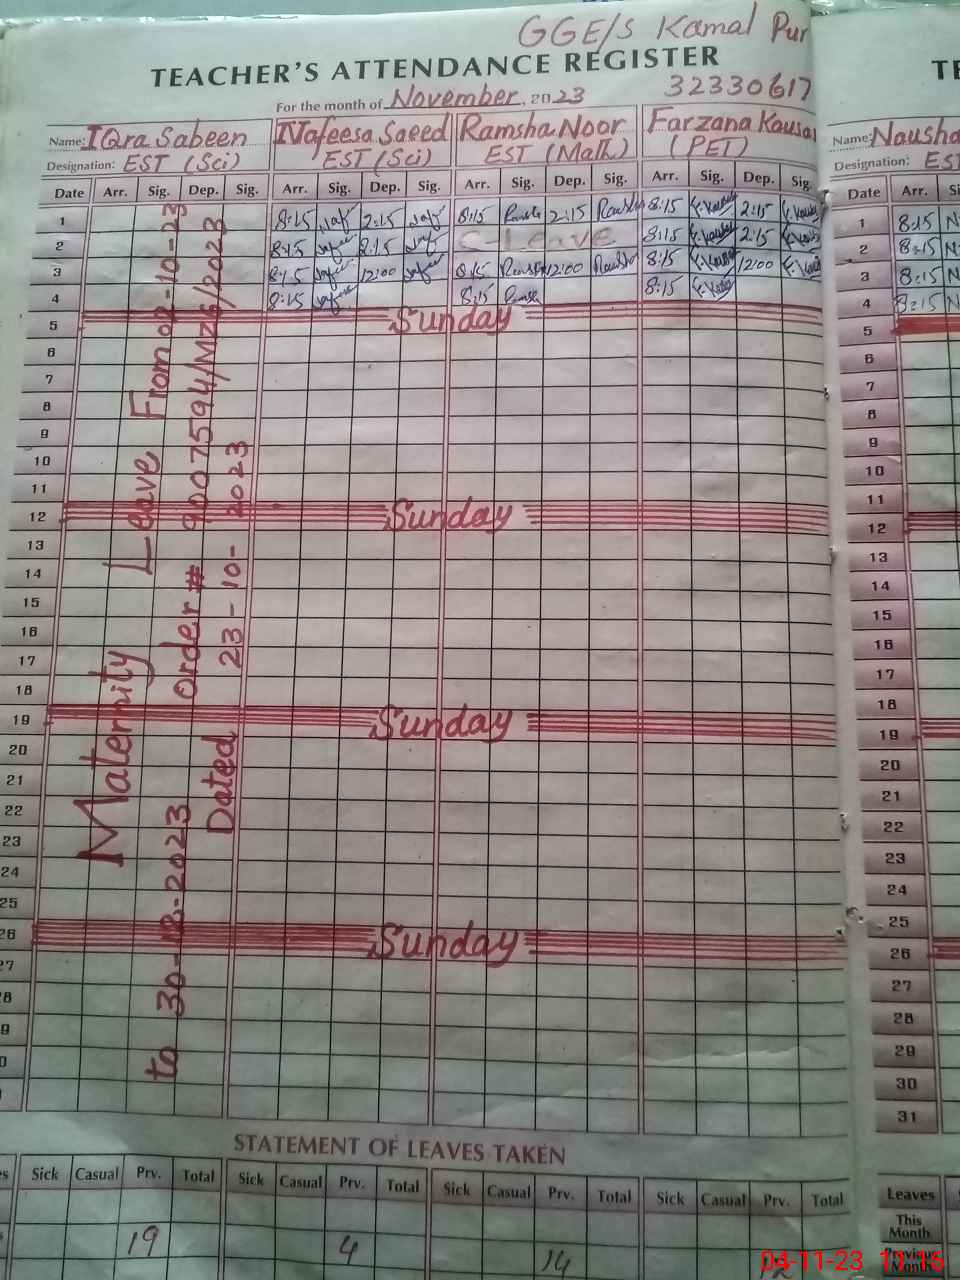 GGE/S Kamal Pur
TEACHER'S ATTENDANCE REGISTER
32330617
For the month of November, 2023
Name: IQra Sabeen Nafeesa Saeed Ramsha Noor Farzana Kausar Name: Nausha
Designation: EST (Sci) EST (Sci) EST (Math) (PET) Designation: EST
Date Arr. Sig. Dep. Sig. Arr. Sig. Dep. Sig. Arr. Sig. Dep. Sig. Arr. Sig. Dep. Sig. Date Arr. Si
1 8:15 2:15 8:15 2:15 8:15 2:15 1 8:15
2 8:15 2:15 C-Leave 8:15 2:15 2 8:15
3 8:15 12:00 8:15 12:00 8:15 12:00 3 8:15
4 8:15 8:15 8:15 4 8:15
5 Sunday 5
6 6
7 7
8 8
9 9
10 10
11 11
12 Sunday 12
13 13
14 14
15 15
16 16
17 17
18 18
19 Sunday 19
20 20
21 21
22 22
23 23
24 24
25 25
26 Sunday 26
27 27
28 28
29
30
31
Maternity Leave From 02-10-23
to 30-12-2023 Order # 9007594/MZG/2023
Dated 23-10-2023
STATEMENT OF LEAVES TAKEN
Sick Casual Prv. Total Sick Casual Prv. Total Sick Casual Prv. Total Sick Casual Prv. Total Leaves
This Month
19 4 14 Previous Month
04-11-23 11:16